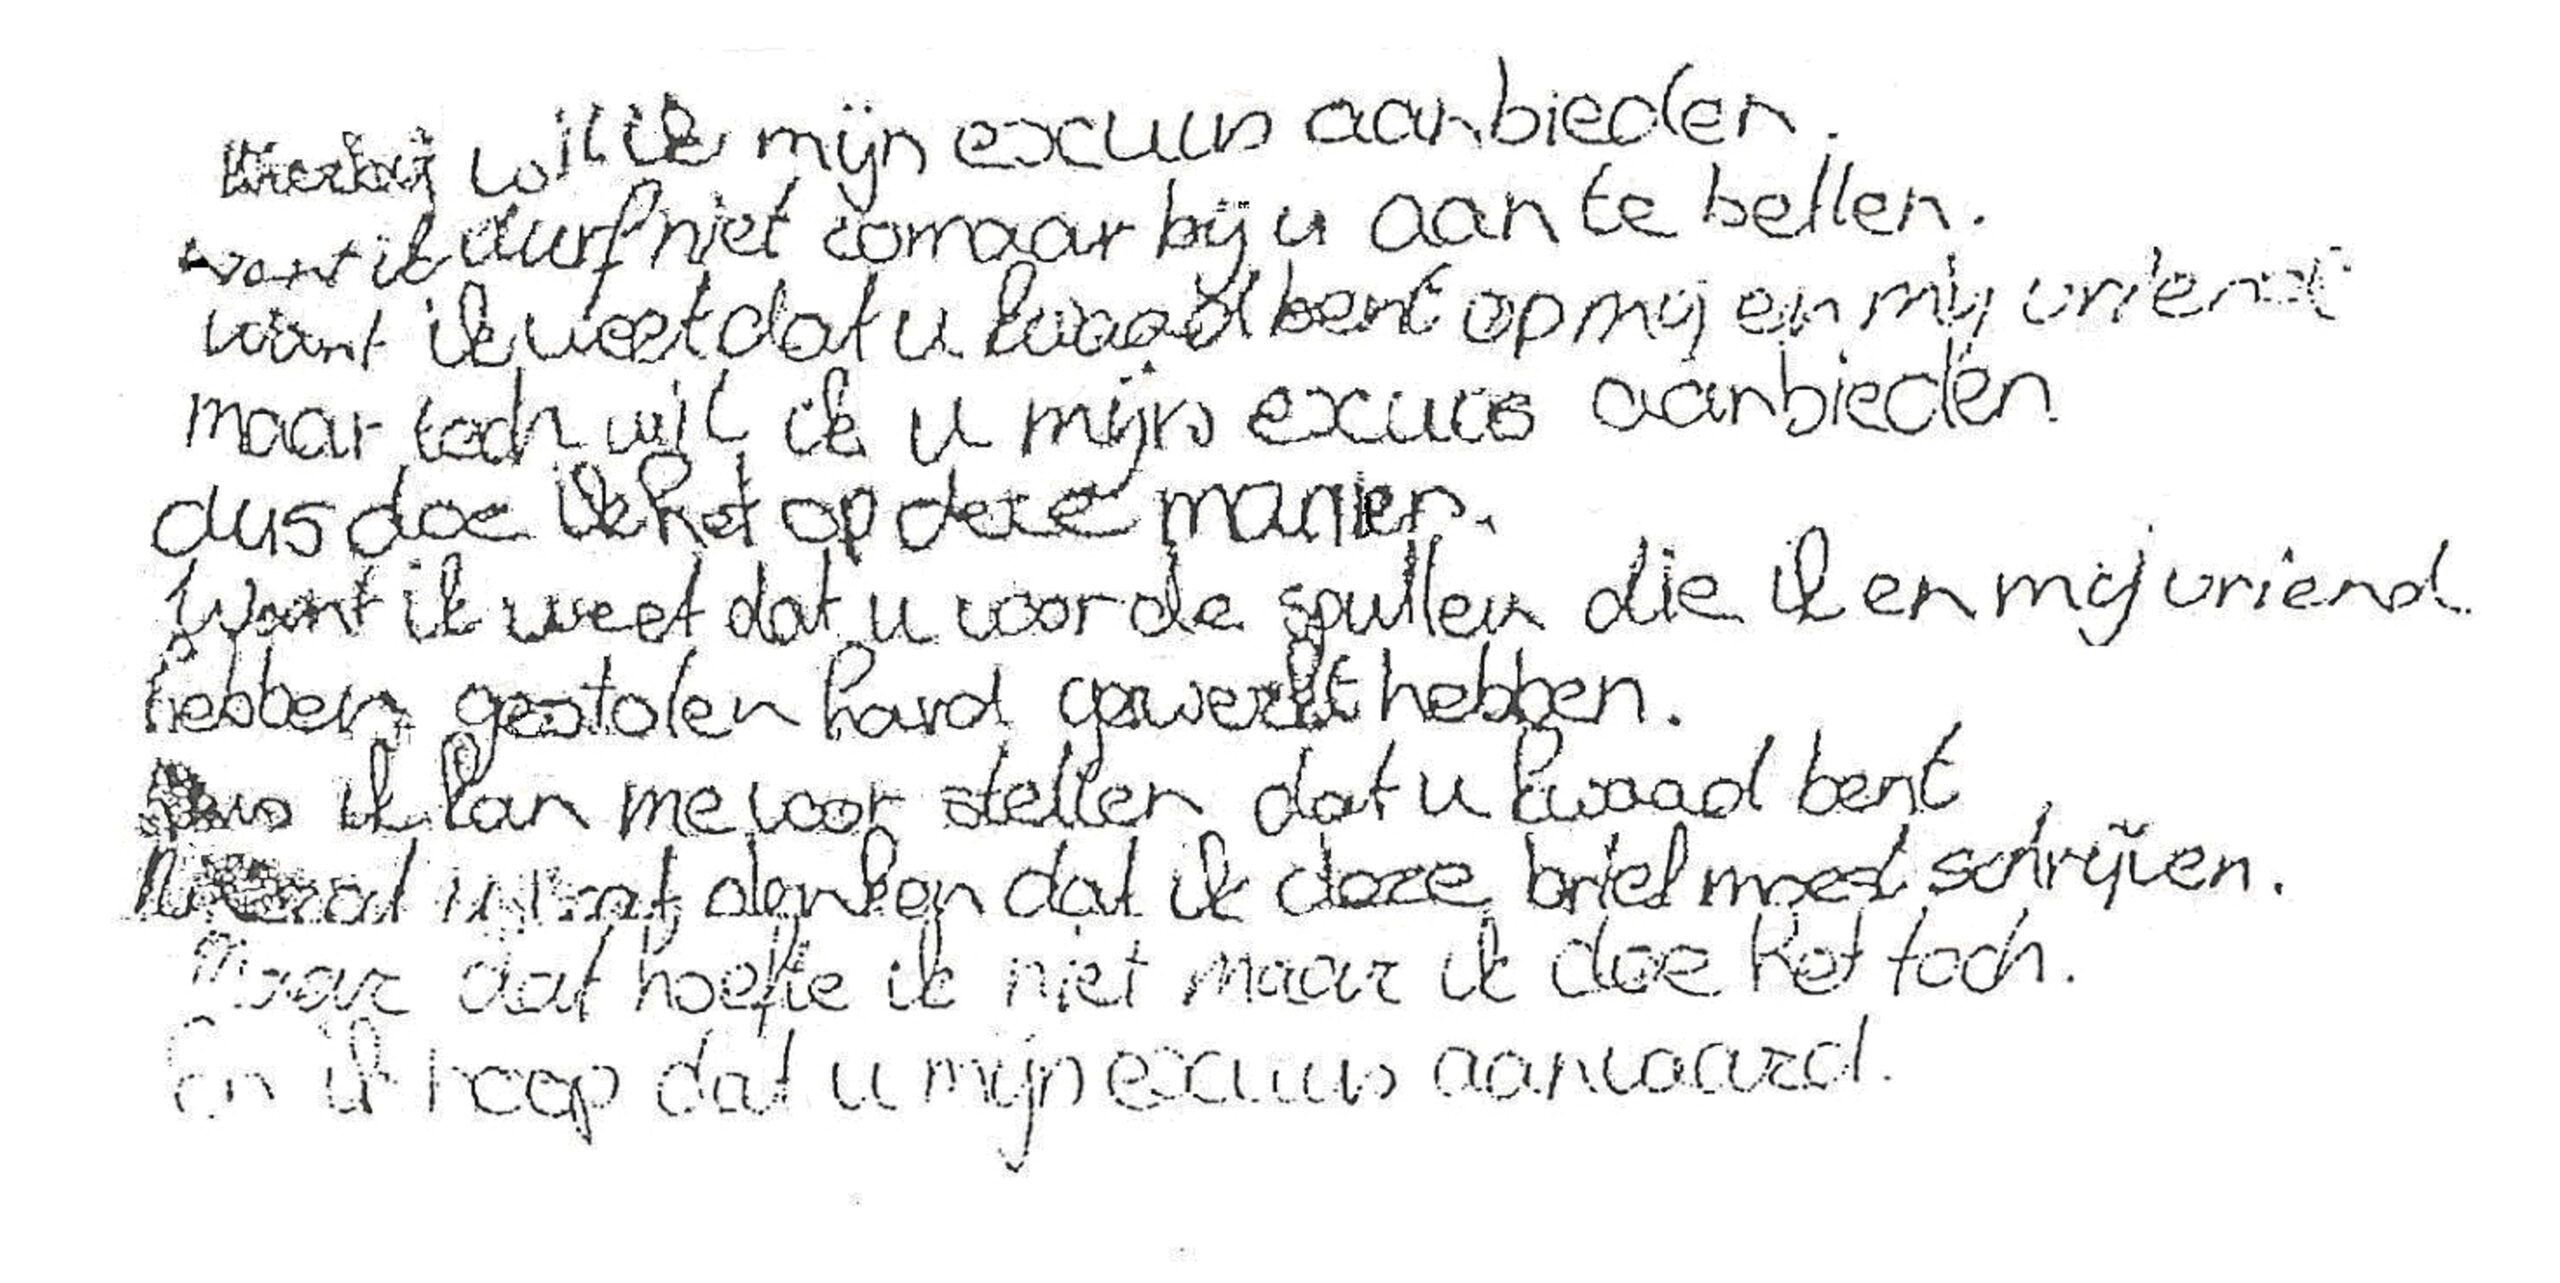 Hierbij wil ik mijn excuus aanbieden.
want ik durf niet zomaar bij u aan te bellen.
want ik weet dat u kwaad bent op mij en mij vriend
maar toch wil ik u mijn excuus aanbieden
dus doe ik het op deze manier.
Want ik weet dat u voor de spullen die ik en mij vriend
hebben gestolen hard gewerkt hebben.
Dus ik kan me voor stellen dat u kwaad bent
denken dat ik deze brief moest schrijven.
Maar dat hoefte ik niet maar ik doe het toch.
En ik hoop dat u mijn excuus aanvaard.